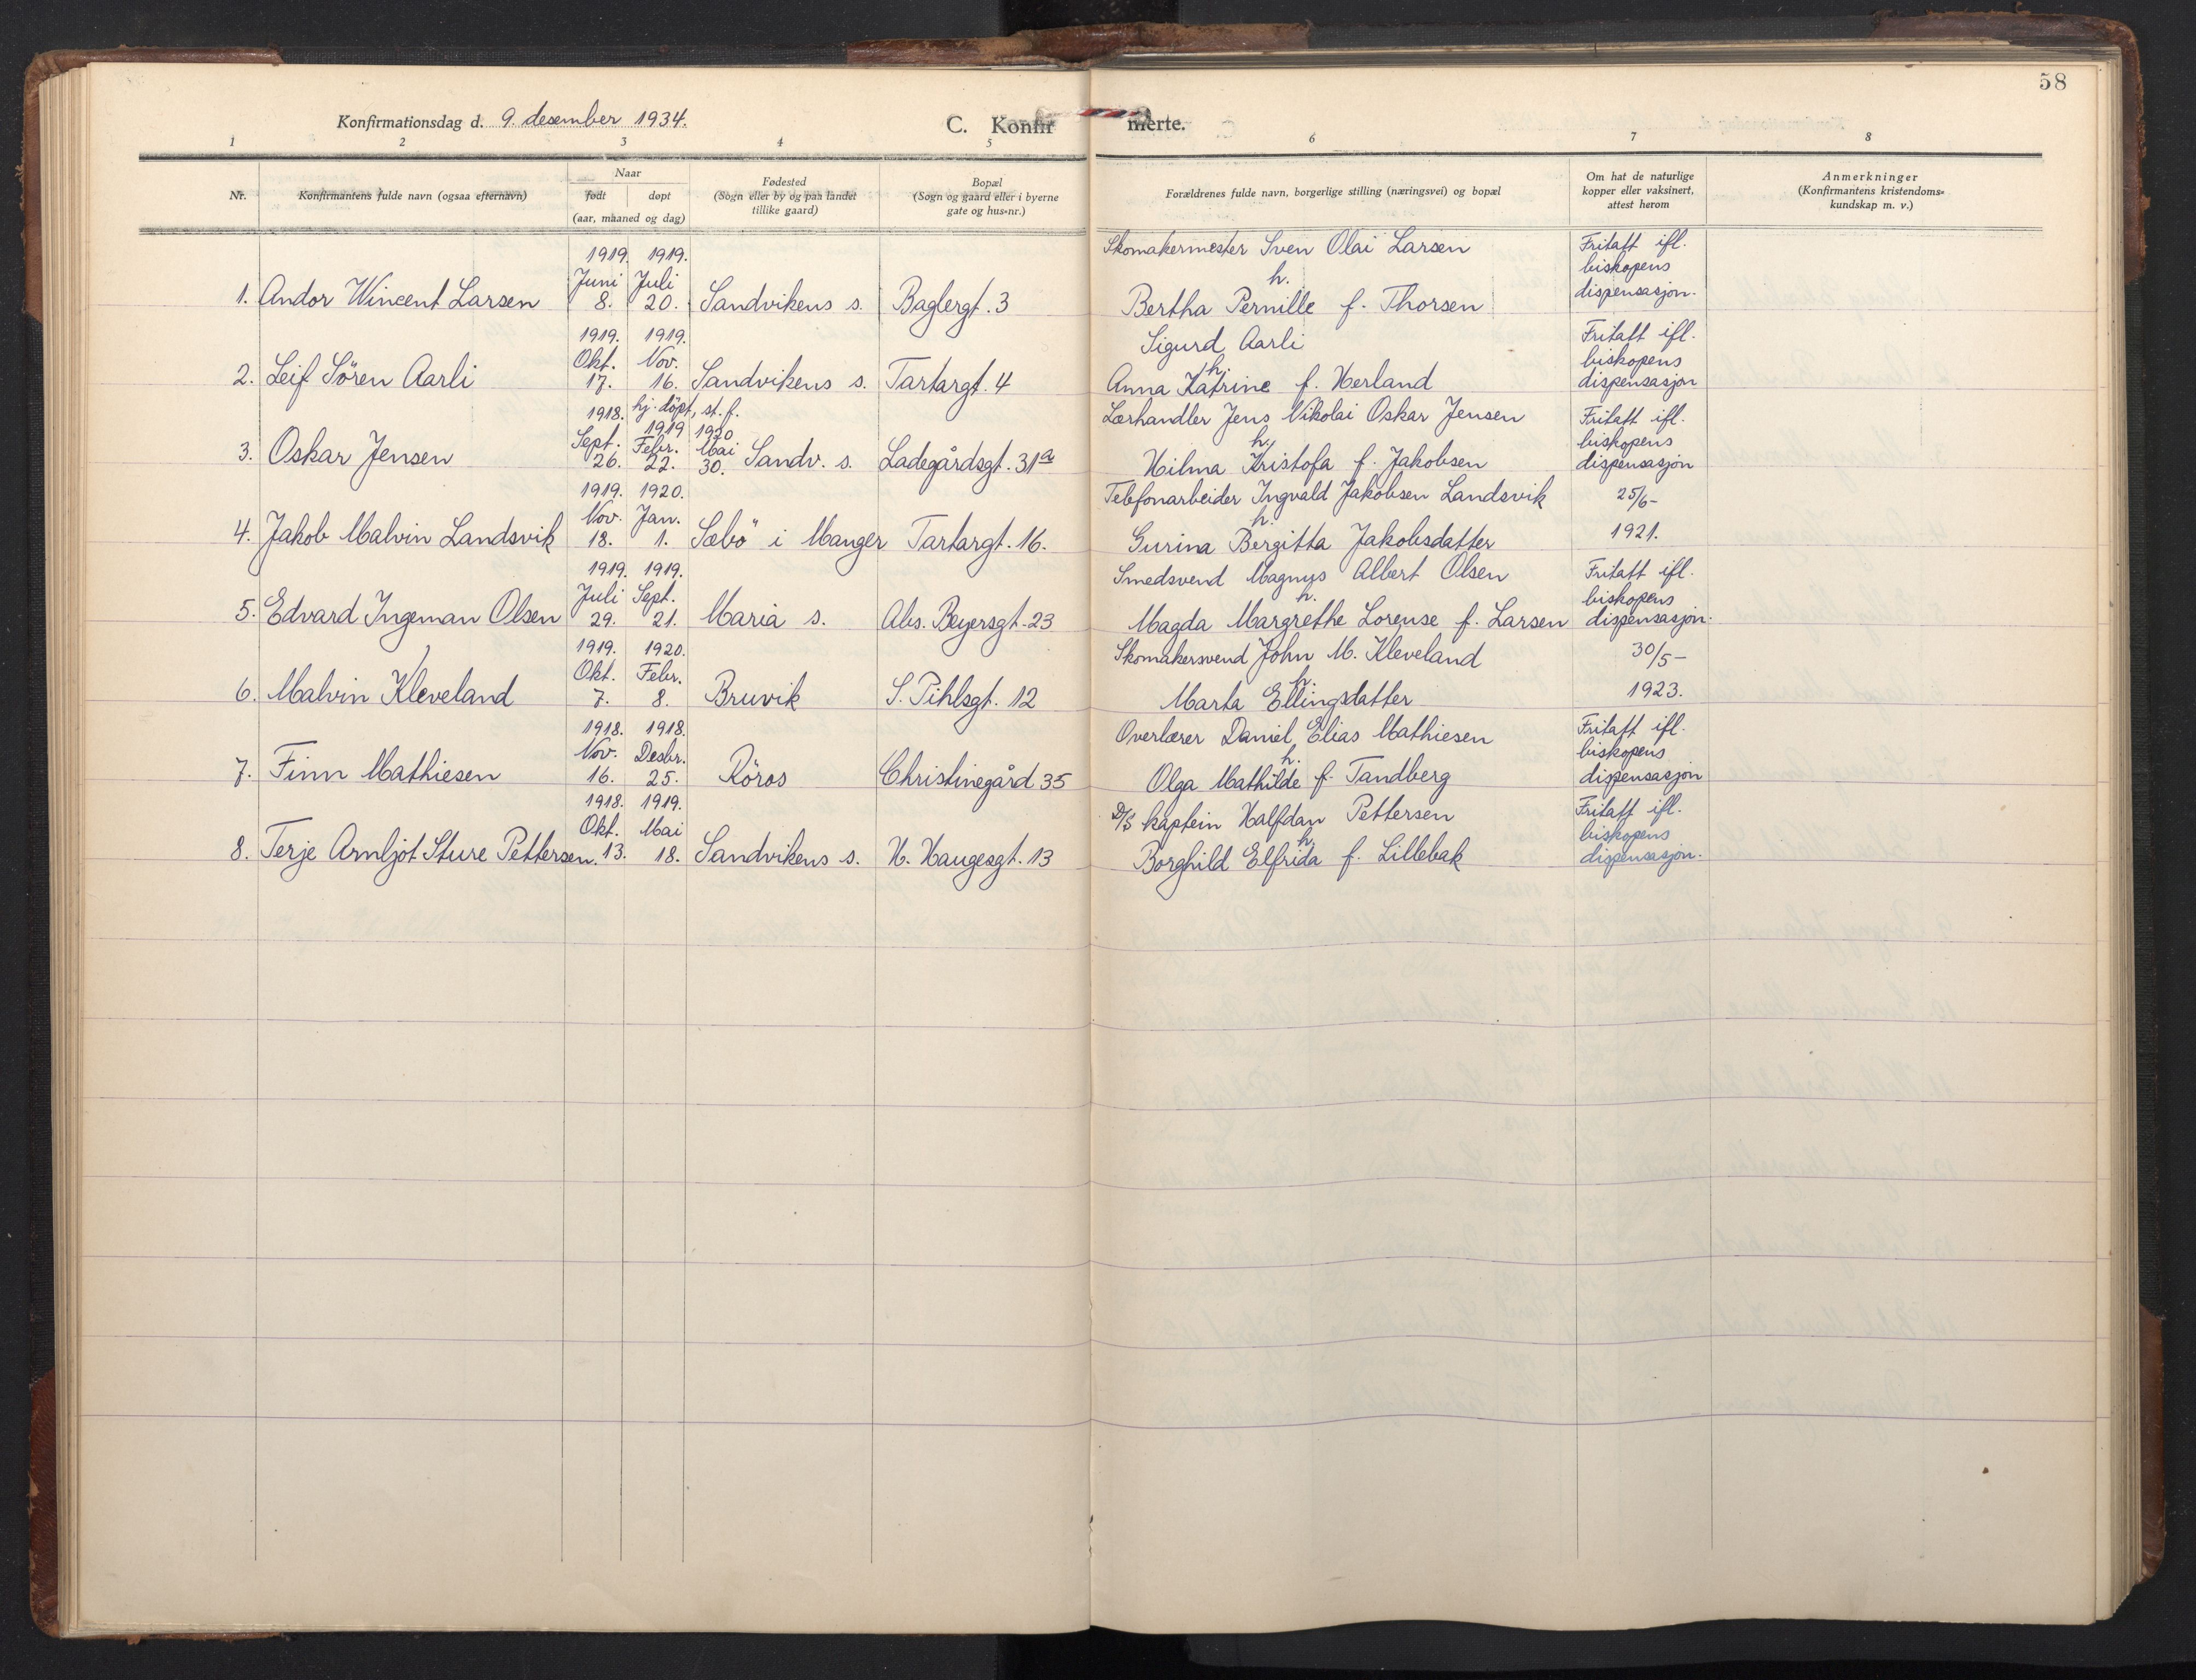 58
Konfirmationsdag d. 9. desember 1934.
C. Konfirmerte.
1 2 3 4 5 6 7 8
Nr.
Konfirmantens fulde navn (ogsaa efternavn)
Naar
født døpt
(aar, maaned og dag)
Fødested
(Sogn eller by og paa landet
tillike gaard)
Bopæl
(Sogn og gaard eller i byerne
gate og hus-nr.)
Forældrenes fulde navn, borgerlige stilling (næringsvei) og bopæl
Om hat de naturlige
kopper eller vaksinert,
attest herom
Anmerkninger
(Konfirmantens kristendoms-
kundskap m. v.)
1919. 1919. Skomakermester Sven Olai Larsen Fritatt ifl.
Juni Juli h. biskopens
1. Andor Wincent Larsen 8. 20. Sandvikens s. Baglergt. 3 Bertha Pernille f. Thorsen dispensasjon.
1919. 1919. Sigurd Aarli Fritatt ifl.
Okt. Nov. h. biskopens
2. Leif Sören Aarli 17. 16. Sandvikens s. Tartargt. 4 Anna Katrine f. Herland dispensasjon
1918. hj. döpt, st. f. Lærhandler Jens Nikolai Oskar Jensen Fritatt ifl.
1919 1920
Sept. Febr. Mai h. biskopens
3. Oskar Jensen 26. 22. 30. Sandv. s. Ladegårdsgt. 31a Hilma Kristofa f. Jakobsen dispensasjon
1919. 1920. Telefonarbeider Ingvald Jakobsen Landsvik 25/6-
Nov. Jan. h.
4. Jakob Malvin Landsvik 18. 1. Sæbö i Manger Tartargt. 16. Gurina Bergitta Jakobsdatter 1921.
1919. 1919. Smedsvend Magnus Albert Olsen Fritatt ifl.
Juli Sept. h. biskopens
5. Edvard Ingeman Olsen 29. 21. Maria s. Abs. Beyersgt. 23 Magda Margrethe Lorense f. Larsen dispensasjon.
1919. 1920. Skomakersvend John M. Kleveland 30/5-
Okt. Febr. h.
6. Malvin Kleveland 7. 8. Bruvik S. Pihlsgt. 12 Marta Ellingsdatter 1923.
1918. 1918. Overlærer Daniel Elias Mathiesen Fritatt ifl.
Nov. Desbr. h. biskopens
7. Finn Mathiesen 16. 25. Röros Christinegård 35 Olga Mathilde f. Tandberg dispensasjon
1918. 1919. D/S kaptein Halfdan Pettersen Fritatt ifl.
Okt. Mai h. biskopens
8. Terje Arnljot Sture Pettersen. 13. 18. Sandvikens s. H. Haugesgt. 13 Borghild Elfrida f. Lillebak dispensasjon.